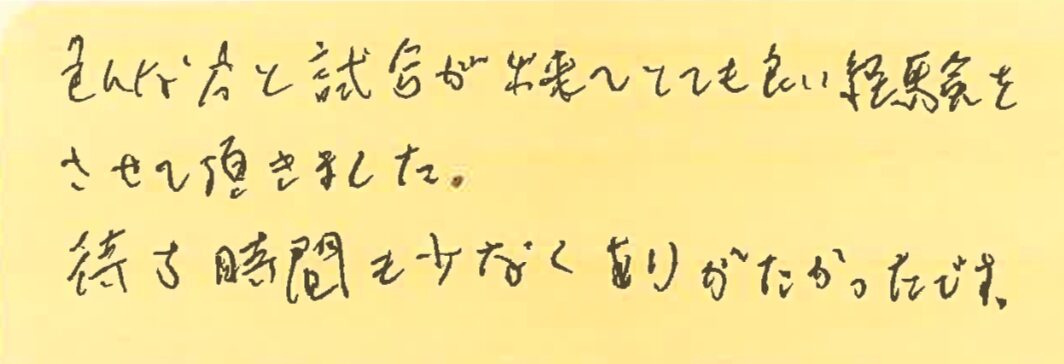 色んな方と試合が出来てとても良い経験を
させて頂きました。
待ち時間も少なくありがたかったです。